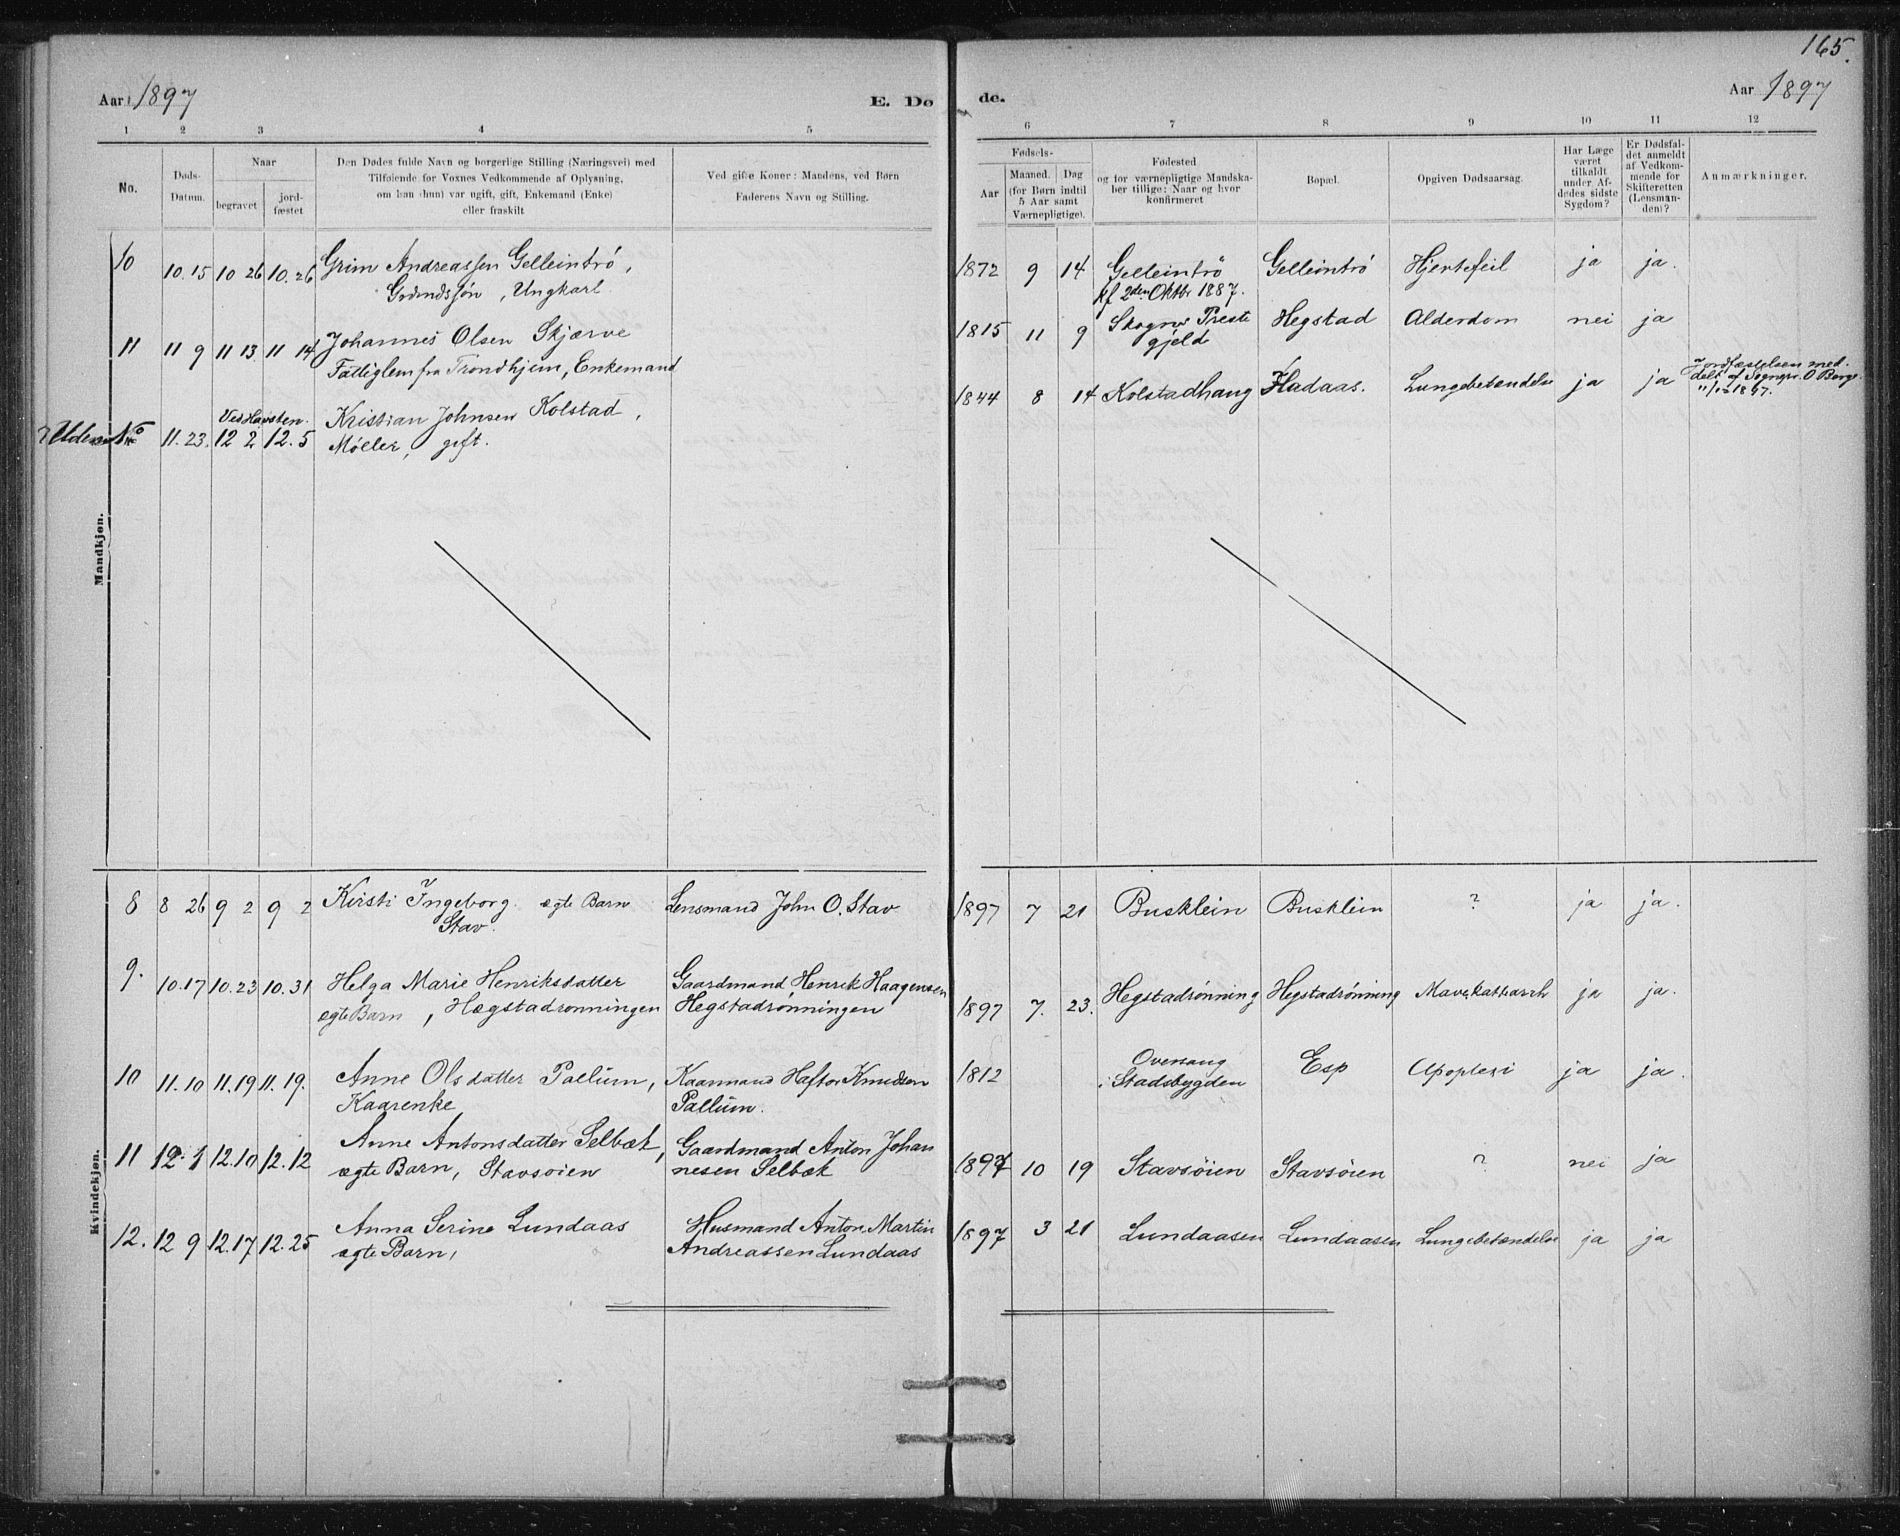 165.
Aar 1897 E. Dø
de. Aar 1897
1 2 3 4 5
6 7 8 9 10 11 12
No.
Døds-
Datum.
Naar
begravet
jord-
fæstet
Den Dødes fulde Navn og borgerlige Stilling (Næringsvei) med
Tilføiende for Voxnes Vedkommende af Oplysning,
om han (hun) var ugift, gift, Enkemand (Enke)
eller fraskilt
Ved gifte Koner: Mandens, ved Børn
Faderens Navn og Stilling.
Fødsels-
Aar
Maaned. Dag
(for Børn indtil
5 Aar samt
Værnepligtige).
Fødested
og for værnepligtige Mandska-
ber tillige: Naar og hvor
konfirmeret
Bopæl.
Opgiven Dødsaarsag.
Har Læge
været
tilkaldt
under Af-
dødes sidste
Sygdom?
Er Dødsfal-
det anmeldt
af Vedkom-
mende for
Skifteretten
(Lensman-
den)?
Anmærkninger.
Mandkjøn.
10 10.15 10 26 10.26 Grim Andreassen Gelleintrø, 1872 9 14 Gelleintrö Gelleintrö Hjertefeil ja ja.
, Ungkarl
kf 2den Oktbr 1887.
11 11 9 11 13 11 14 Johannes Olsen Skjærve 1815 11 9 Skogns Preste Hegstad Alderdom nei ja
Fattiglem fra Trondhjem, Enkemand
gjeld
Uden No 11.23. 12 2 12.5 Kristian Johnsen Kolstad, 1844 8 14 Kolstadhaug Fladaas. Lungebetændelse ja ja Jordfæstelsen med-
Møller, gift.
delt af Sognepr. O Borge
11/12 1897.
Kvindekjøn.
8 8 26 9 2 9 2 Kirsti Ingeborg ægte Barn Lensmand John O. Stav 1897 7 21 Busklein Busklein ? ja ja.
Stav.
9. 10.17 10.23 10.31 Helga Marie Henriksdatter Gaardmand Henrik Haagensen 1897 7. 23. Hegstadrønning Hegstadrønning Mavekatharrh ja ja.
ægte Barn, Hægstadrønningen Hegstadrønningen
10 11.10 11.19 11.19. Anne Olsdatter Pallum, Kaarmand Haftor Knudsen 1812 i Stadsbygden Esp Apoplexi ja ja.
Kaarenke Pallum.
11 12.1 12.10 12.12 Anne Antonsdatter Selbæk, Gaardmand Anton Johan 1897 10 19 Stavsøien Stavsøien ? nei ja
ægte Barn, Stavsøien nesen Selbæk
12. 12 9 12.17 12.25 Anna Serine Lundaas Husmand Anton Martin 1897 3 21 Lundaasen Lundaasen Lungebetændelse ja ja
ægte Barn, Andreassen Lundaas